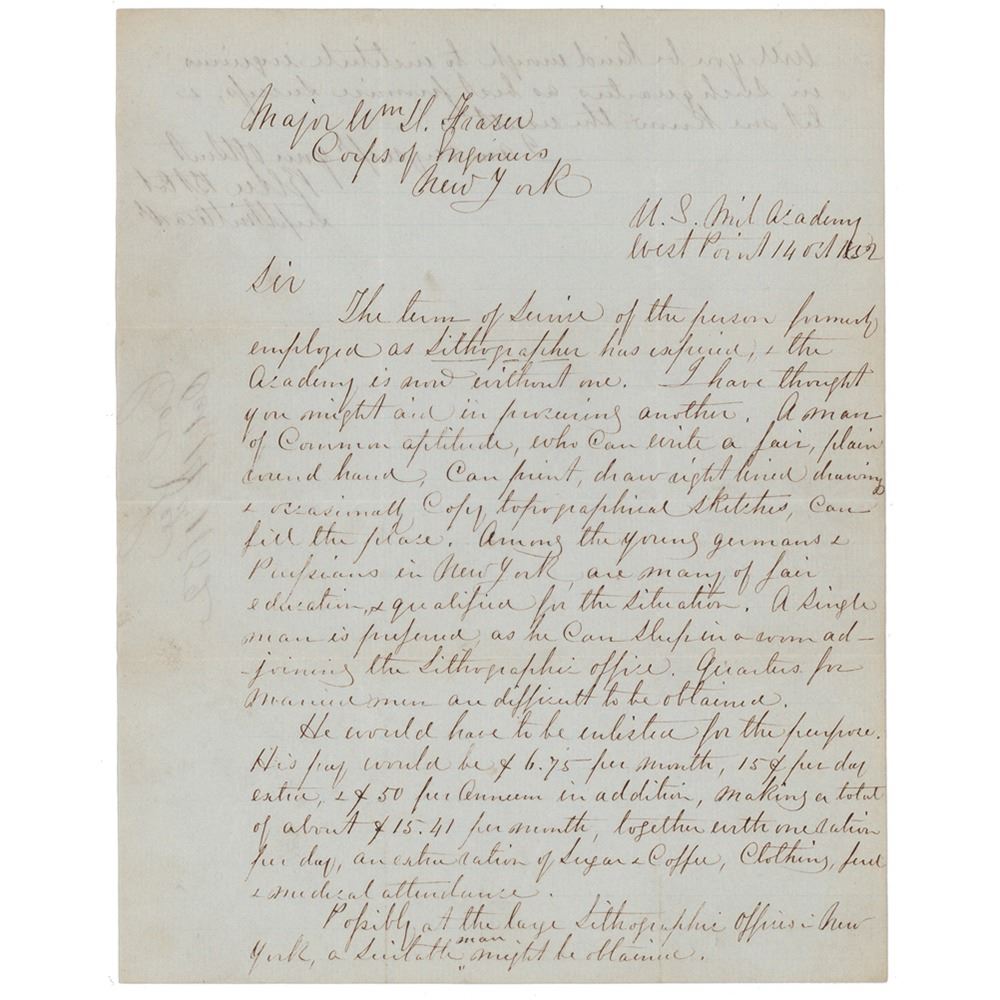 Major Wm. D. Fraser
Corps of Engineers
New York
U. S. Mil Academy
West Point 14 Oct 1852
Sir
The term of service of the person formerly
employed as Lithographer has expired, & the
Academy is now without one. I have thought
you might aid in procuring another. A man
of Common aptitude, who Can write a fair, plain
round hand, Can print, draw right lined drawings
& occasionally Copy topographical sketches, Can
fill the place. Among the young germans &
Prussians in New York, are many of fair
education, & qualified for the situation. A single
man is preferred, as he Can sleep in a room ad-
-joining the Lithographic office. Quarters for
married men are difficult to be obtained.
He would have to be enlisted for the purpose.
His pay would be $ 6.75 per month, 15¢ per day
extra, & $ 50 per Annum in addition, making a total
of about $ 15.41 per month, together with one ration
per day, an extra ration of Sugar & Coffee, Clothing, fuel
& medical attendance.
Possibly at the large Lithographic Offices in New
York, a suitable man might be obtained.